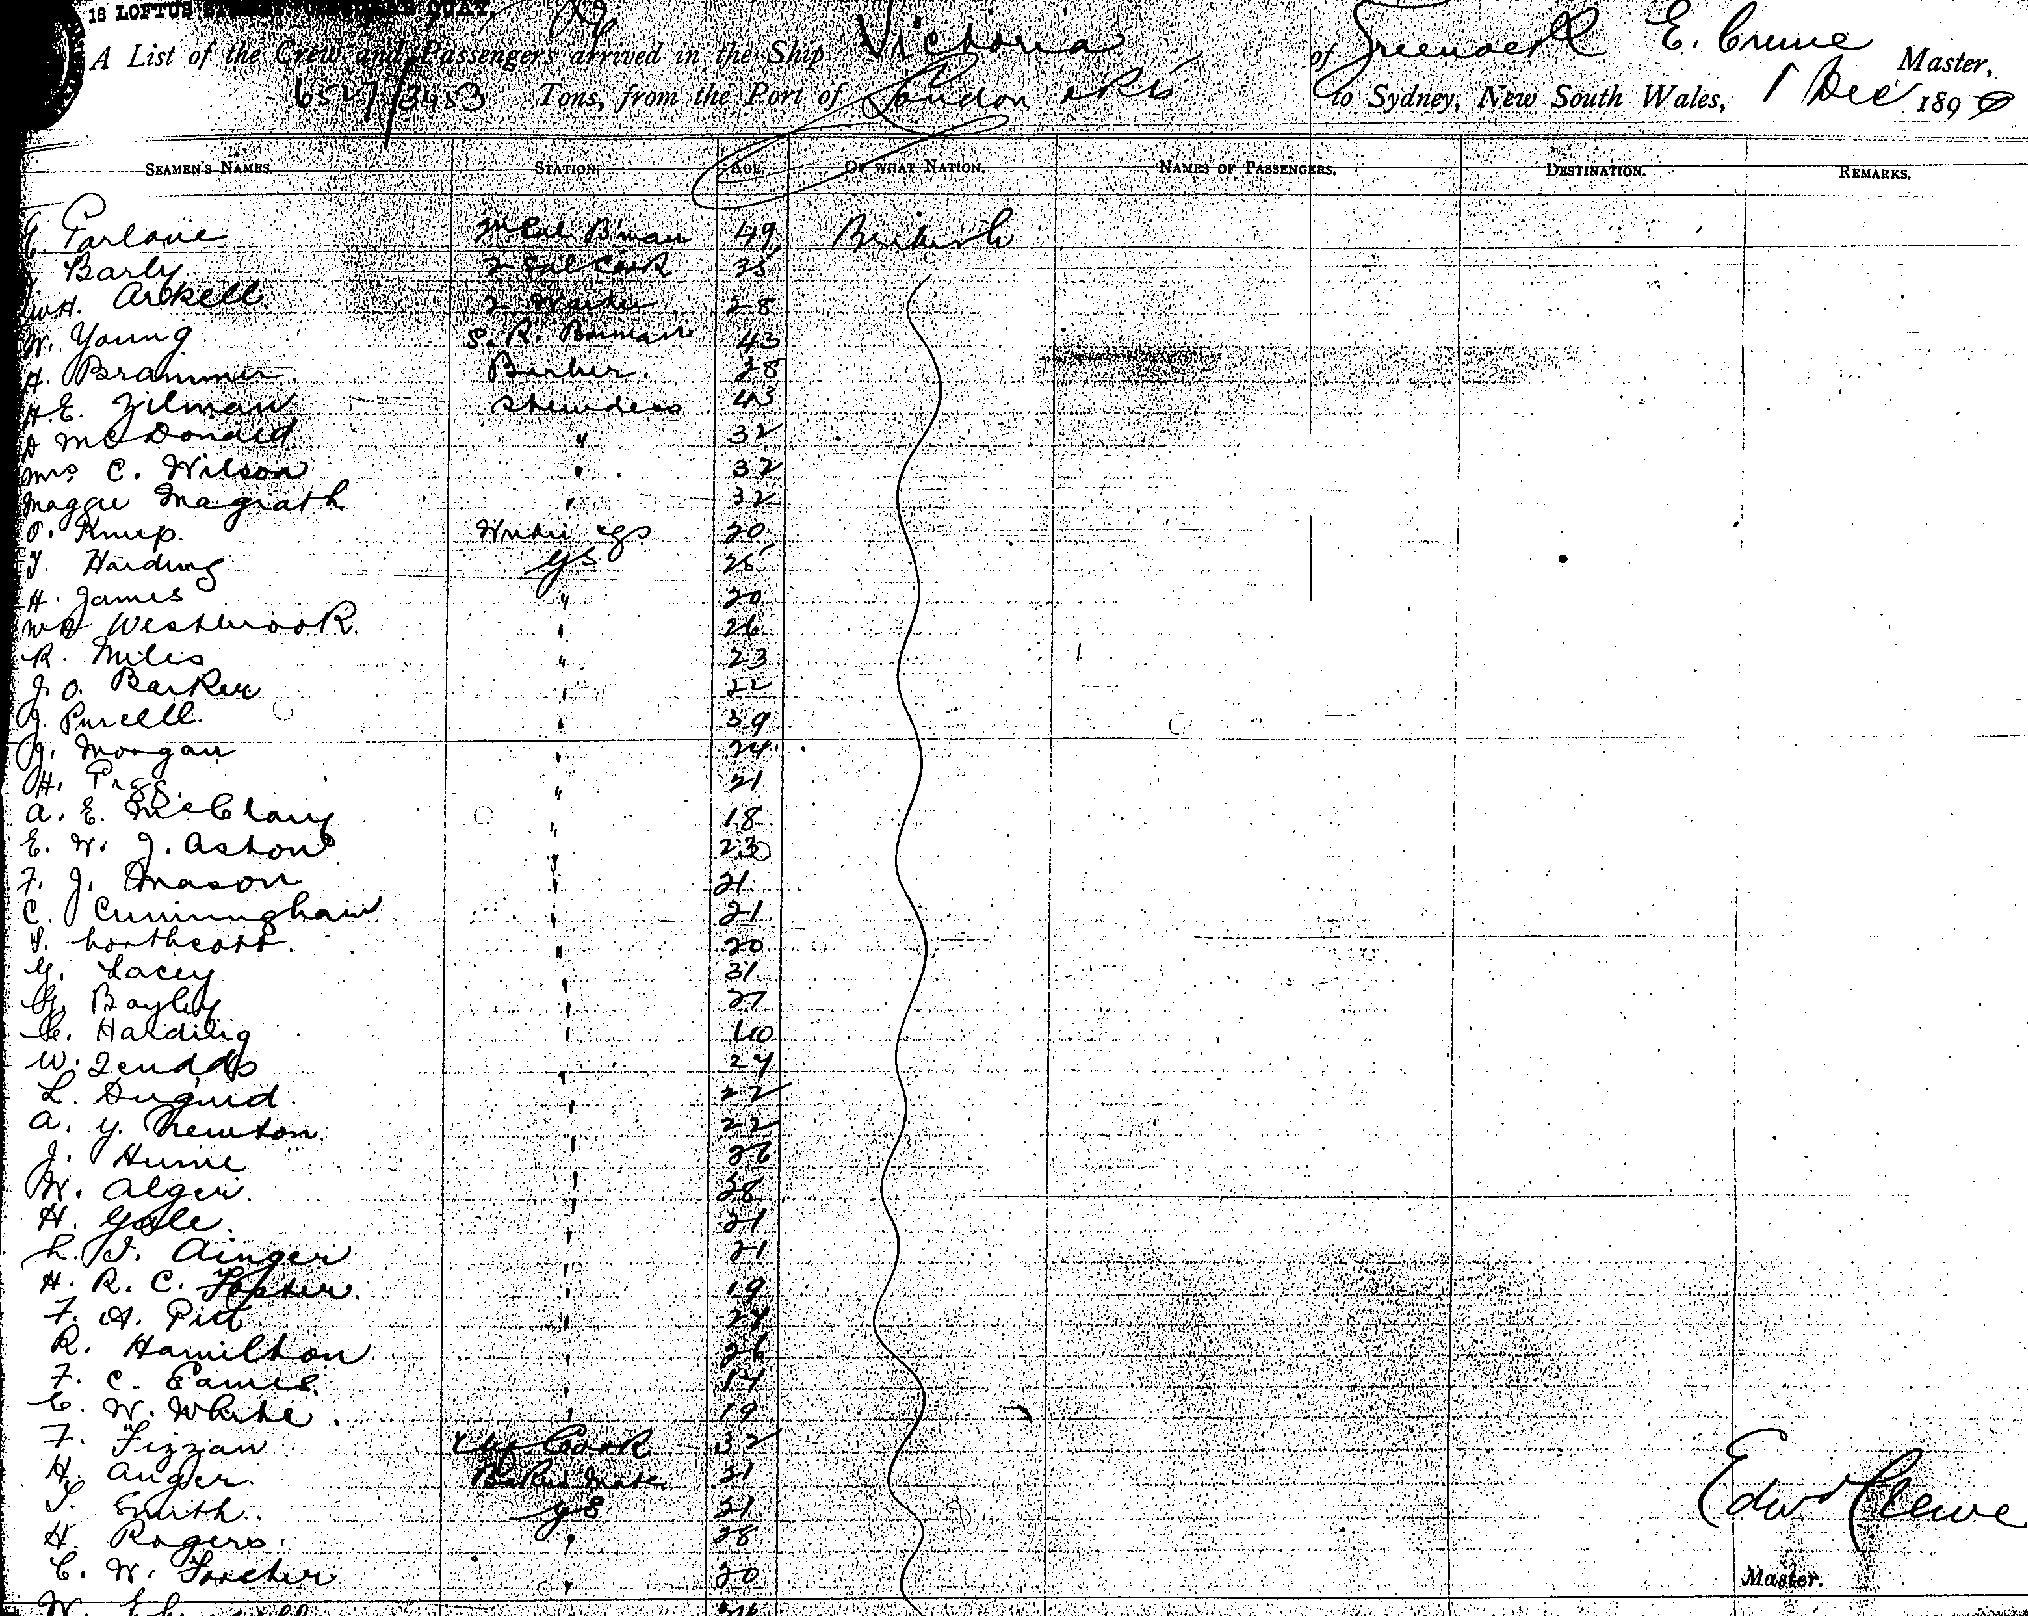 18 LOFTUS QUAY.
A List of the Crew and Passengers arrived in the Ship Victoria of Greenock E. Crewe Master,
6527/3453 Tons, from the Port of London to Sydney, New South Wales, 1 Dec 1890
SEAMEN'S NAMES. STATION. AGE. OF WHAT NATION. NAMES OF PASSENGERS. DESTINATION. REMARKS.
Parlane 49 British
Barly 2 Cook 25
W.H. Arkell 2 28
W. Young S. R. 43
A. Brammer Barber 28
A. E. Zilman Stewdess 43
D McDonald " 32
Mrs C. Wilson " 32
Maggie Magrath " 32
O. 20
T. Harding GS 25
H. James " 20
Westbrook " 26
R. Miles " 23
J. O. Barker " 22
J. Purcell " 39
J. Morgan " 24
H. " 21
A. E. " 18
E. W. J. Aston " 23
F. J. Mason " 21
C. Cunningham " 21
S. Northcott " 20
G. Lacey " 31
G. Bayley " 27
C. Harding " 40
W. " 24
L. Duguid " 22
A. Y. Newton " 22
J. Hume " 26
W. Alger " 28
H. Gale " 21
L. F. Ainger " 21
H. R. C. " 19
F. A. Pitt " 24
R. Hamilton " 26
F. C. Eames " 17
C. W. White " 19
F. Tizzian Cook 32
H. Auger Bakers Mate 21
S. Smith GS 21
H. Rogers " 28
C. W. " 20
W.
Edwd Crewe
Master.